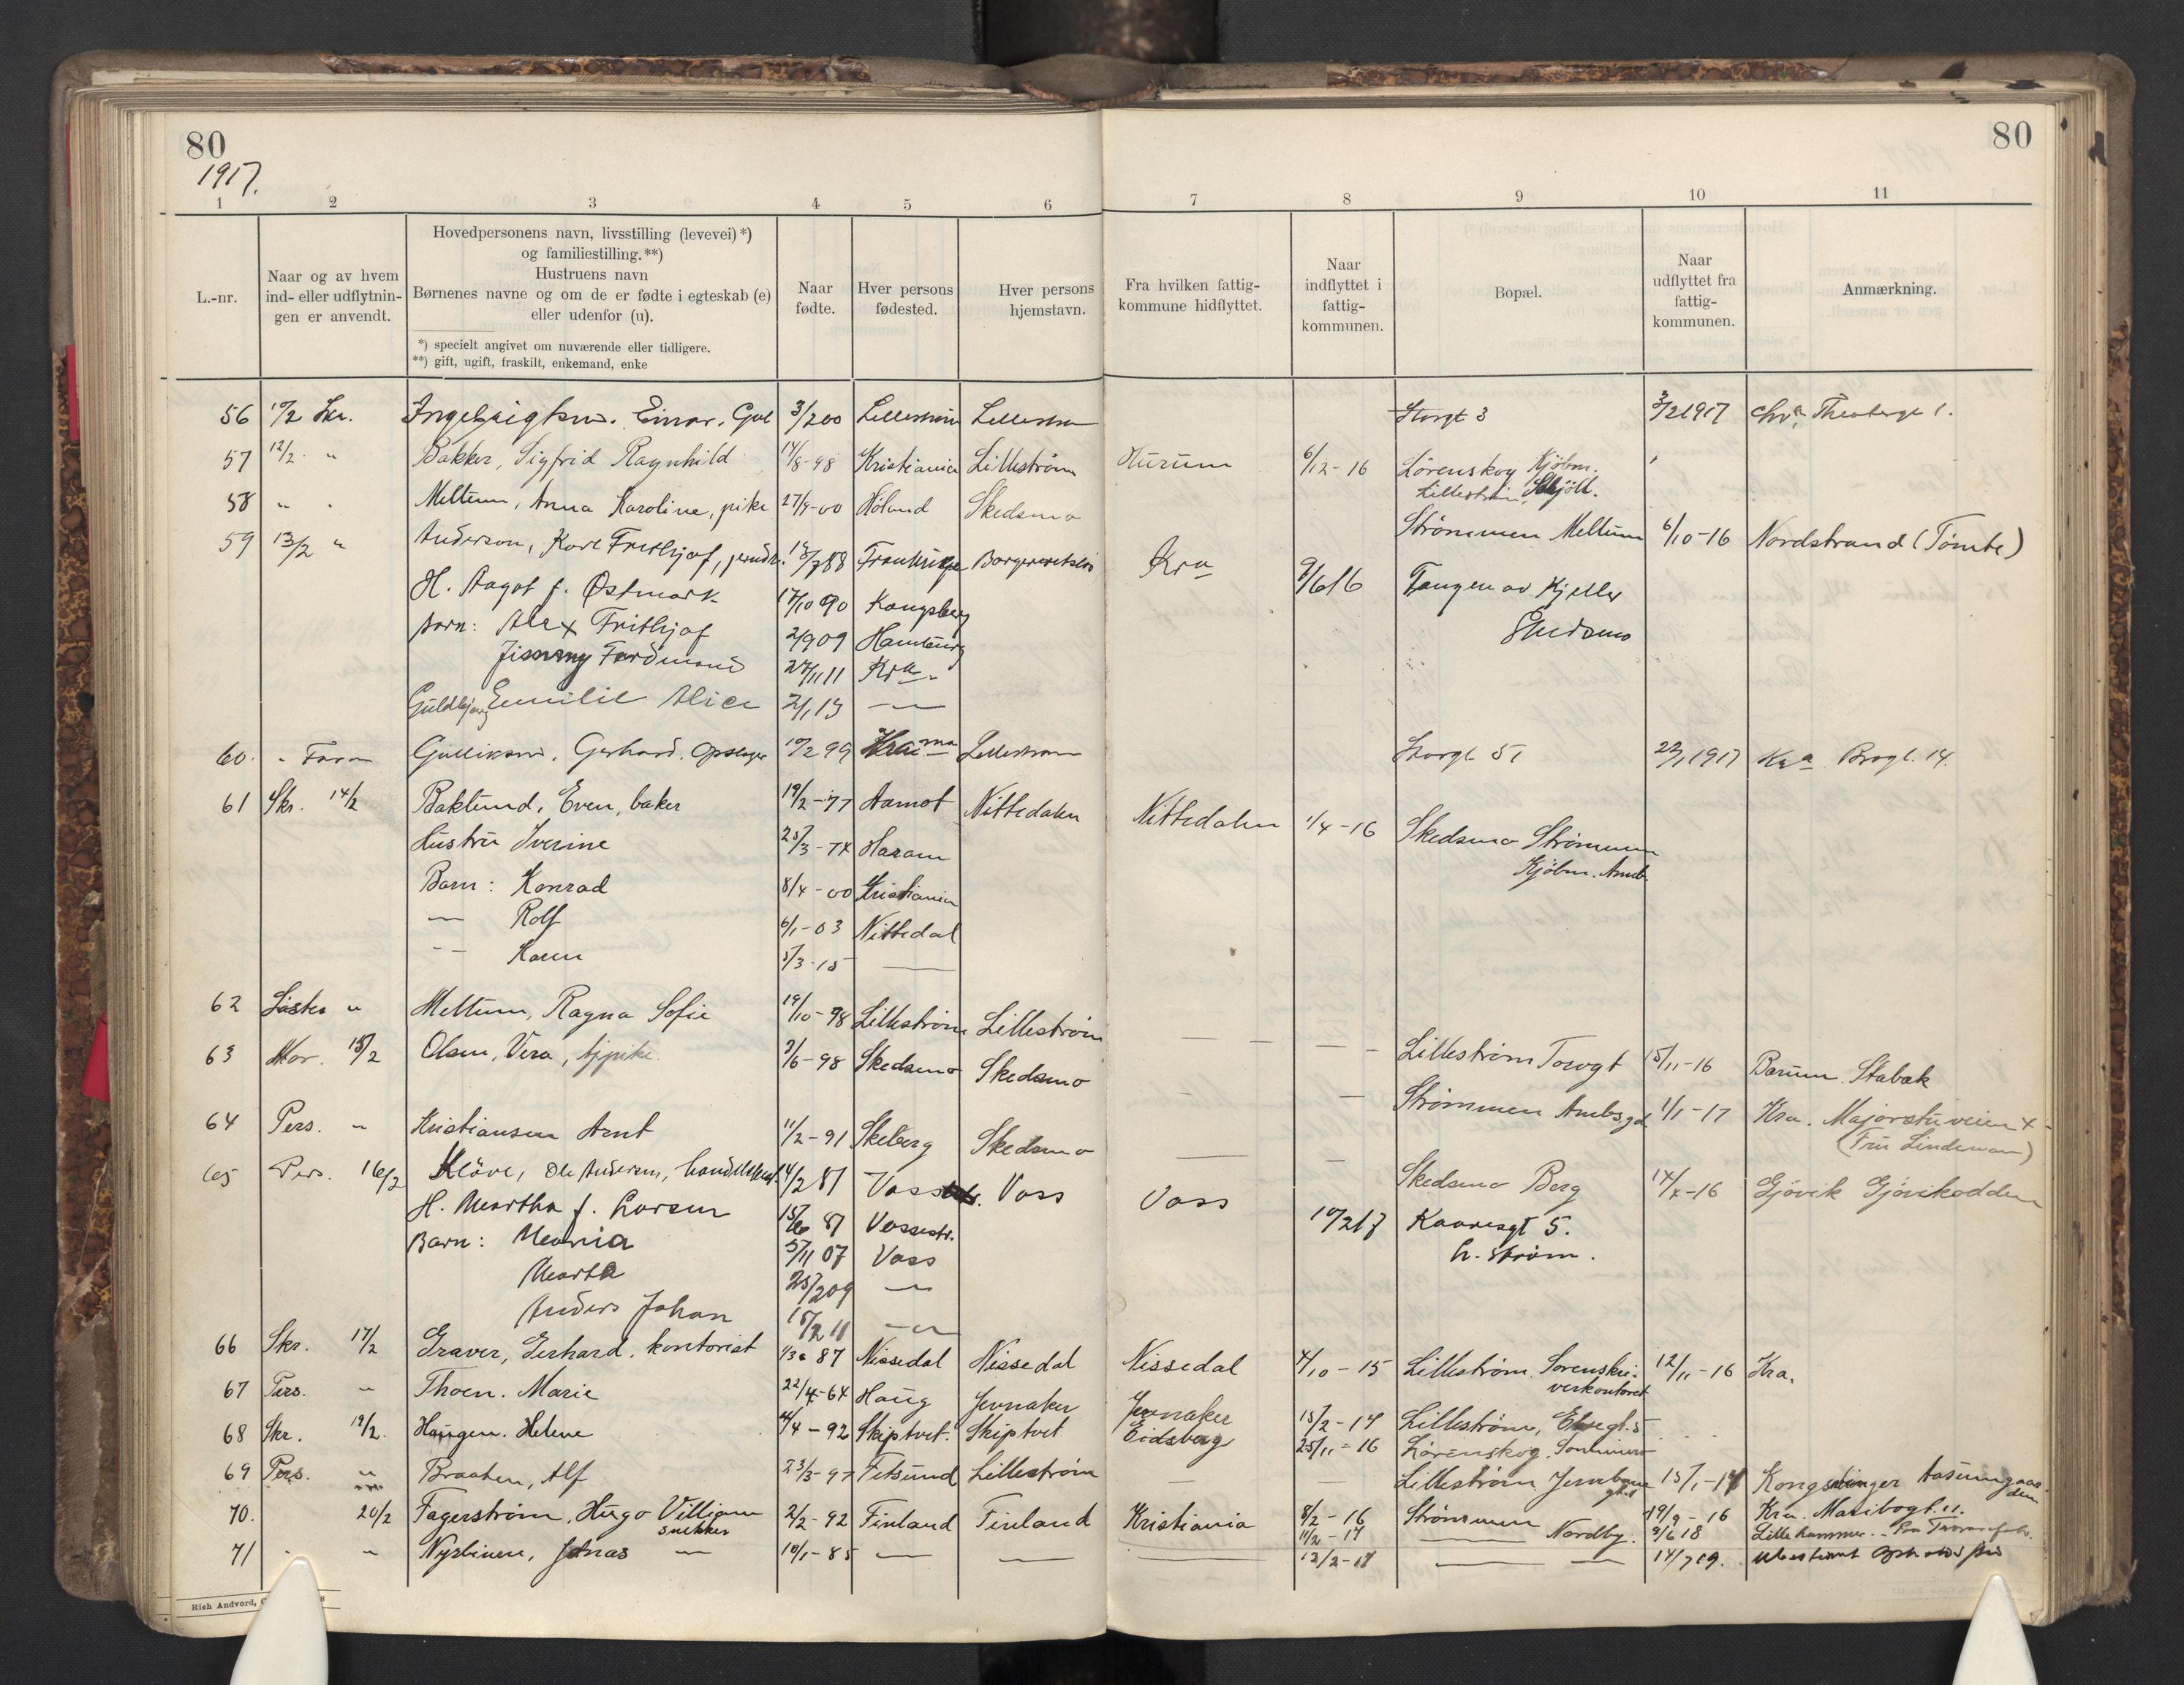 80
80
1917.
1 2 3 4 5 6 7 8 9 10 11
L.-nr.
Naar og av hvem
ind- eller udflytnin-
gen er anvendt.
Hovedpersonens navn, livsstilling (levevei) *)
og familiestilling.**)
Hustruens navn
Børnenes navne og om de er fødte i egteskab (e)
eller udenfor (u).
*) specielt angivet om nuværende eller tidligere.
**) gift, ugift, fraskilt, enkemand, enke
Naar
fødte.
Hver persons
fødested.
Hver persons
hjemstavn.
Fra hvilken fattig-
kommune hidflyttet.
Naar
indflyttet i
fattig-
kommunen.
Bopæl.
Naar
udflyttet fra
fattig-
kommunen.
Anmærkning.
56 Einar 3/2 00 Lillestrøm Storgt 3 3/2 1917
57 12/2 " Bakker, Sigfrid Ragnhild 14/8-98 Kristiania Lillestrøm Hurum 6/12-16 Lørenskog Kjøbm.
Lillestrøm,
58 " " Meltum, Anna Karoline, pike 27/9-00 Høland Skedsmo Strømmen Meltum 6/10-16 Nordstrand (Tømte)
59 13/2 " Anderson, Karl Frithjof, 88 Frankrige Kra 9/6 16 Tangen av Kjeller
H. Aagot f. Østmark 17/10 90 Kongsberg Skedsmo
Barn: Alex Frithjof 2/9 09 Hamburg
Jimmy Ferdinand 27/11 11 Kra.
Guldbjørg Emilie Alice 2/1 15 —"—
60. " Faren Gulliksen, Gerhard. Opslager 10/2 99 Lillestrøm Storgt 51 22/1 1917 Kra Brogt. 14.
61 Skr. 14/2 Baklund, Even, baker 19/2-77 Aamot Nittedalen Nittedalen 1/4-16 Skedsmo Strømmen
Hustru Iverine 25/3-74 Haram Kjøbm. Amb.
Barn: Konrad 8/4-00 Kristiania
— Rolf 6/1-03 Nittedal
-- Karen 5/3-15 —
62 Søster " Meltum, Ragna Sofie 19/10-98 Lillestrøm Lillestrøm — — — Lillestrøm Torvgt 15/11-16 Bærum. Stabæk
63 Mor. 15/2 Olsen, Vera, tjpike. 9/6-98 Skedsmo Skedsmo - — Strømmen 1/1-17 Kra. Majorstuveien 4
(Fru Lindeman)
64 Pers. " Kristiansen Arnt 11/2-91 Skeberg Skedsmo — — Skedsmo Berg 14/4-16 Gjøvik Gjøvikodden
65 Pers. 16/2 Kløve, Ole Andersen, 4/2 81 Voss Voss Voss 10/2 17 Kaaresgt 5.
H. Martha f. Larsen 15/6 87 Vossestr. L. strøm.
Barn: Maria 5/11 07 Voss
Martha 25/2 09 —
Anders Johan 15/2 11 —"—
66 Skr. 17/2 Graver, Gerhard. kontorist 87 Nissedal Nissedal Nissedal 4/10-15 Lillestrøm. Sorenskri-
verkontoret 12/11-16 Kra.
67 Pers. " Thoen. Marie 22/4-64 Haug Jevnaker Jevnaker 15/2-17 Lillestrøm, Elvegt. 5
68 Skr. 19/2. Haugen. Helene 4/4-92 Skiptvet. Skiptvet Eidsberg 25/11-16 Lørenskog.
69 Pers. " Braaten, Alf 23/3-97 Fetsund Lillestrøm — — Lillestrøm Jernbane
gt. 15/1-17 Kongsvinger
70. 20/2 Fagerstrøm, Hugo Villiam 2/2-92 Finland Finland Kristiania 8/2-16 Strømmen 19/9-16 Kra. Maribogt. 11.
snekker 11/2-17 — Nordby. 9/6 18 Lillehammer.
71 " " Jonas — 10/1-85 — — — 12/2-17 — — 14/7 19.
Rich Andvord,